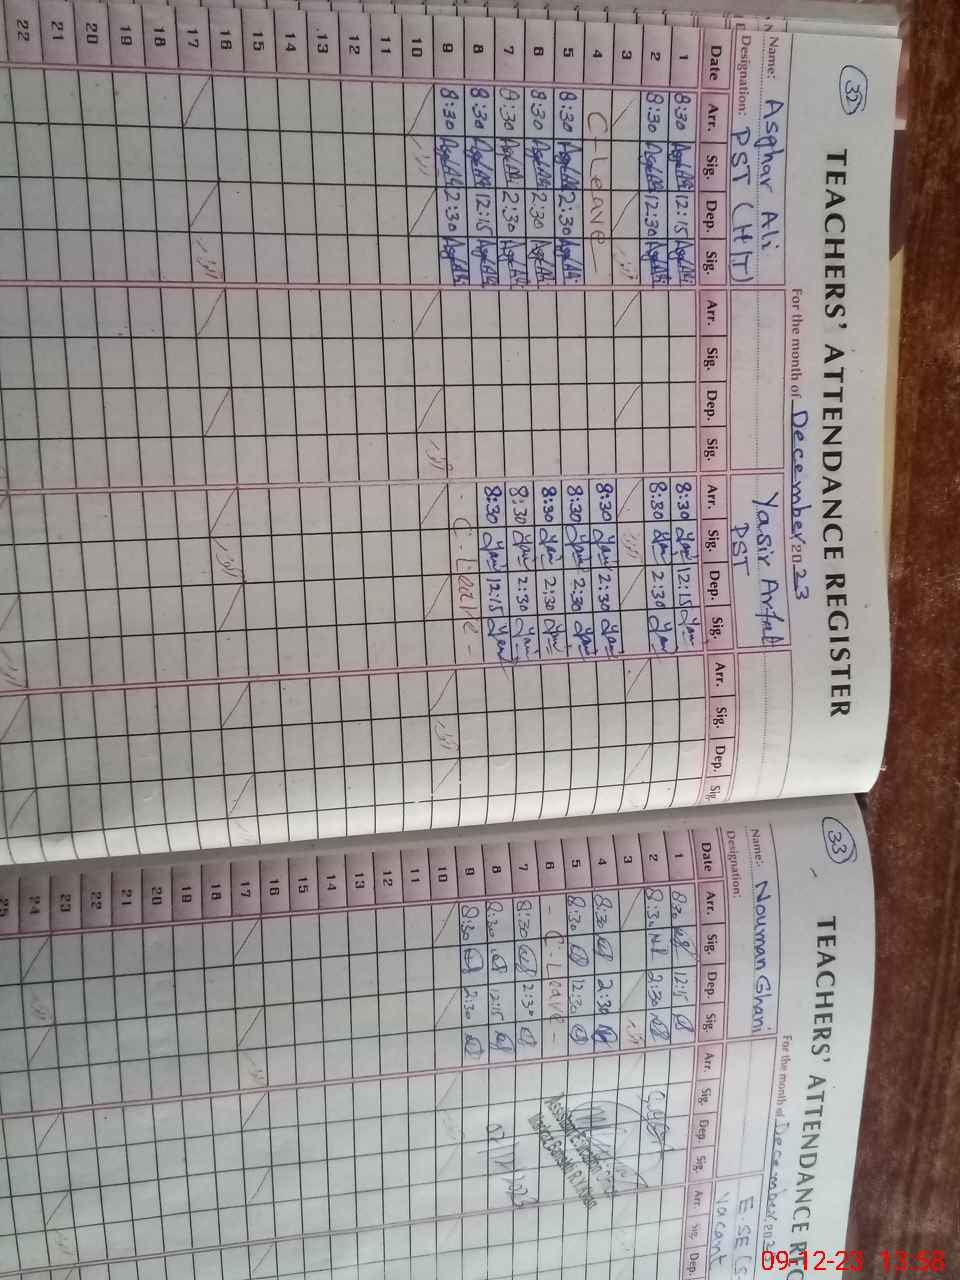 32
TEACHERS' ATTENDANCE REGISTER
For the month of December 2023
Name: Asghar Ali
Yasir Arfat
Designation: PST (HT)
PST
Date Arr. Sig. Dep. Sig. Arr. Sig. Dep. Sig. Arr. Sig. Dep. Sig. Arr. Sig. Dep. Sig.
1 8:30 12:15 8:30 12:15
2 8:30 12:30 8:30 2:30
3
4 C-Leave 8:30 2:30
5 8:30 2:30 8:30 2:30
6 8:30 2:30 8:30 2:30
7 8:30 2:30 8:30 2:30
8 8:30 12:15 8:30 12:15
9 8:30 2:30 C-Leave -
10
11
12
13
14
15
16
17
18
19
20
21
22
33
TEACHERS' ATTENDANCE REG
For the month of December 20
Name: Nouman Ghani
Designation:
Vacant
Date Arr. Sig. Dep. Sig. Arr. Sig. Dep. Sig. Arr. Sig. Dep.
1 8:30 12:15
2 8:30 2:30
3
4 8:30 2:30
5 8:30 12:30
6 - C-Leave -
7 8:30 2:30
8 8:30 12:15
9 8:30 2:30
10
11
12
13
14
15
16
17
18
19
20
21
22
23
24
25
09-12-23 13:58